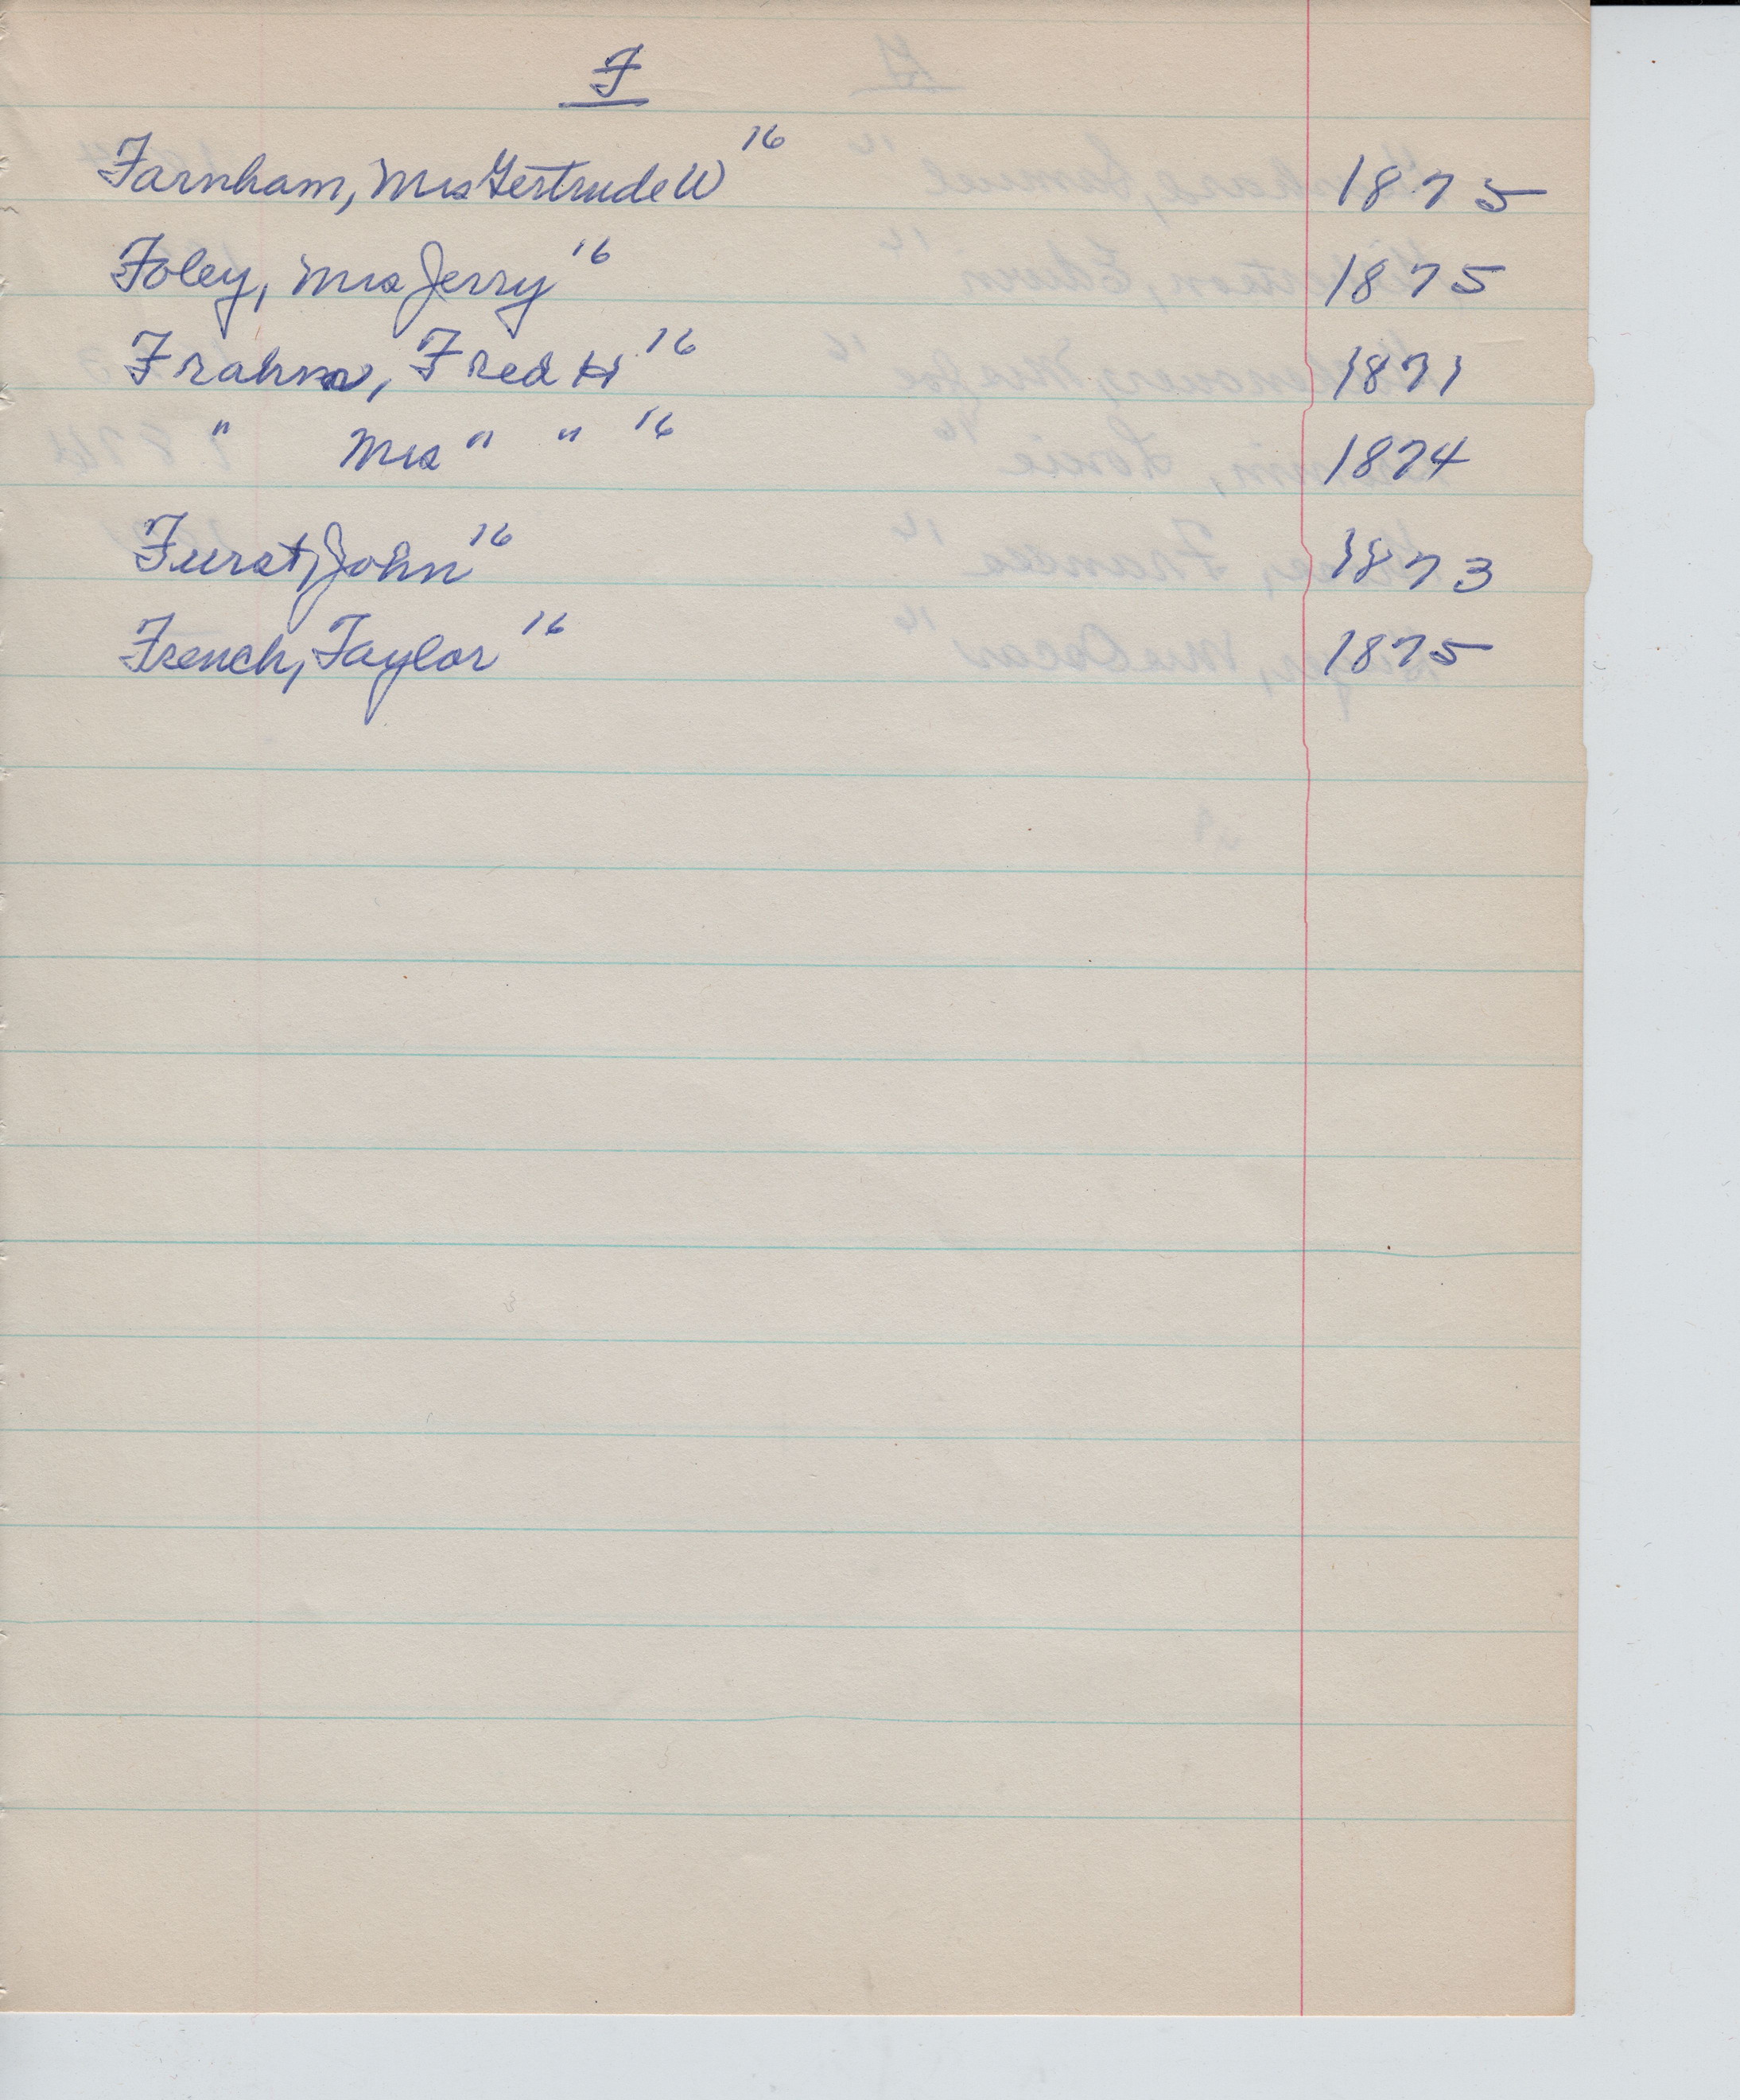 F
Farnham, Mrs Gertrude W 16 1875
Foley, Mrs Jerry 16 1875
Frahm, Fred H 16 1871
" Mrs " " 16 1874
Furst, John 16 1873
French, Taylor 16 1875